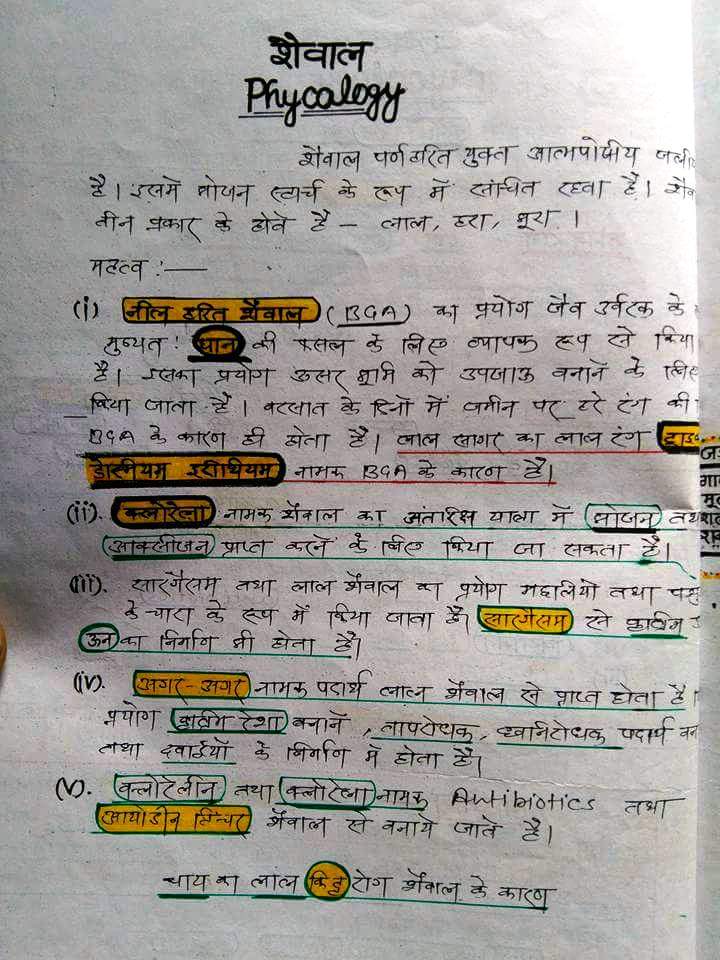 शैवाल
Phycology
शैवाल पर्णहरित युक्त आत्मपोषीय जलीय
है। इसमें भोजन स्टार्च के रूप में संचित रहता है। शैव
तीन प्रकार के होते हैं – लाल, हरा, भूरा।
महत्व :—
(i) नील हरित शैवाल (BGA) का प्रयोग जैव उर्वरक के
मुख्यत: धान की फसल के लिए व्यापक रूप से किया
है। इसका प्रयोग ऊसर भूमि को उपजाऊ बनाने के लिए
किया जाता है। बरसात के दिनों में जमीन पर हरे रंग की
BGA के कारण ही होता है। लाल सागर का लाल रंग ट्राइ
डेस्मीयम इरीथ्रियम नामक BGA के कारण है।
(ii). क्लोरेला नामक शैवाल का अंतरिक्ष यात्रा में भोजन तथ
आक्सीजन प्राप्त करने के लिए किया जा सकता है।
(iii). सारगैसम तथा लाल शैवाल का प्रयोग मछलियों तथा पशु
के चारा के रूप में किया जाता है। सारगैसम से कृत्रिम
ऊन का निर्माण भी होता है।
(iv). अगर-अगर नामक पदार्थ लाल शैवाल से प्राप्त होता है।
प्रयोग कृत्रिम रेशा बनाने, तापरोधक, ध्वनिरोधक पदार्थ बन
तथा दवाईयों के निर्माण में होता है।
(v). क्लोरेलीन तथा क्लोरेला नामक Antibiotics तथा
आयोडीन टिन्चर शैवाल से बनाये जाते है।
चाय का लाल किट्ट रोग शैवाल के कारण